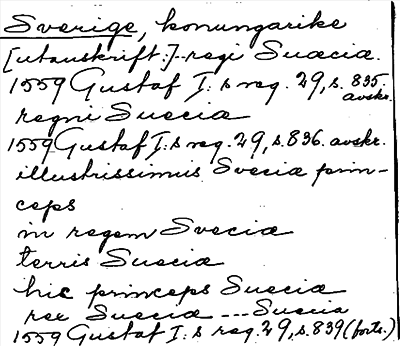 Sverige, konungarike
[utanskrift:] regi Suæciæ.
1559 Gustaf I:s reg. 29, s. 835. avskr.
regni Sueciæ
1559 Gustaf I:s reg. 29, s. 836. avskr.
illustrissimus Sveciæ prin-
ceps
in regem Sveciæ
terris Sueciæ
hic princeps Sueciæ
rex Sueciæ --- Suecia
1559 Gustaf I:s reg. 29, s. 839 (forts.)